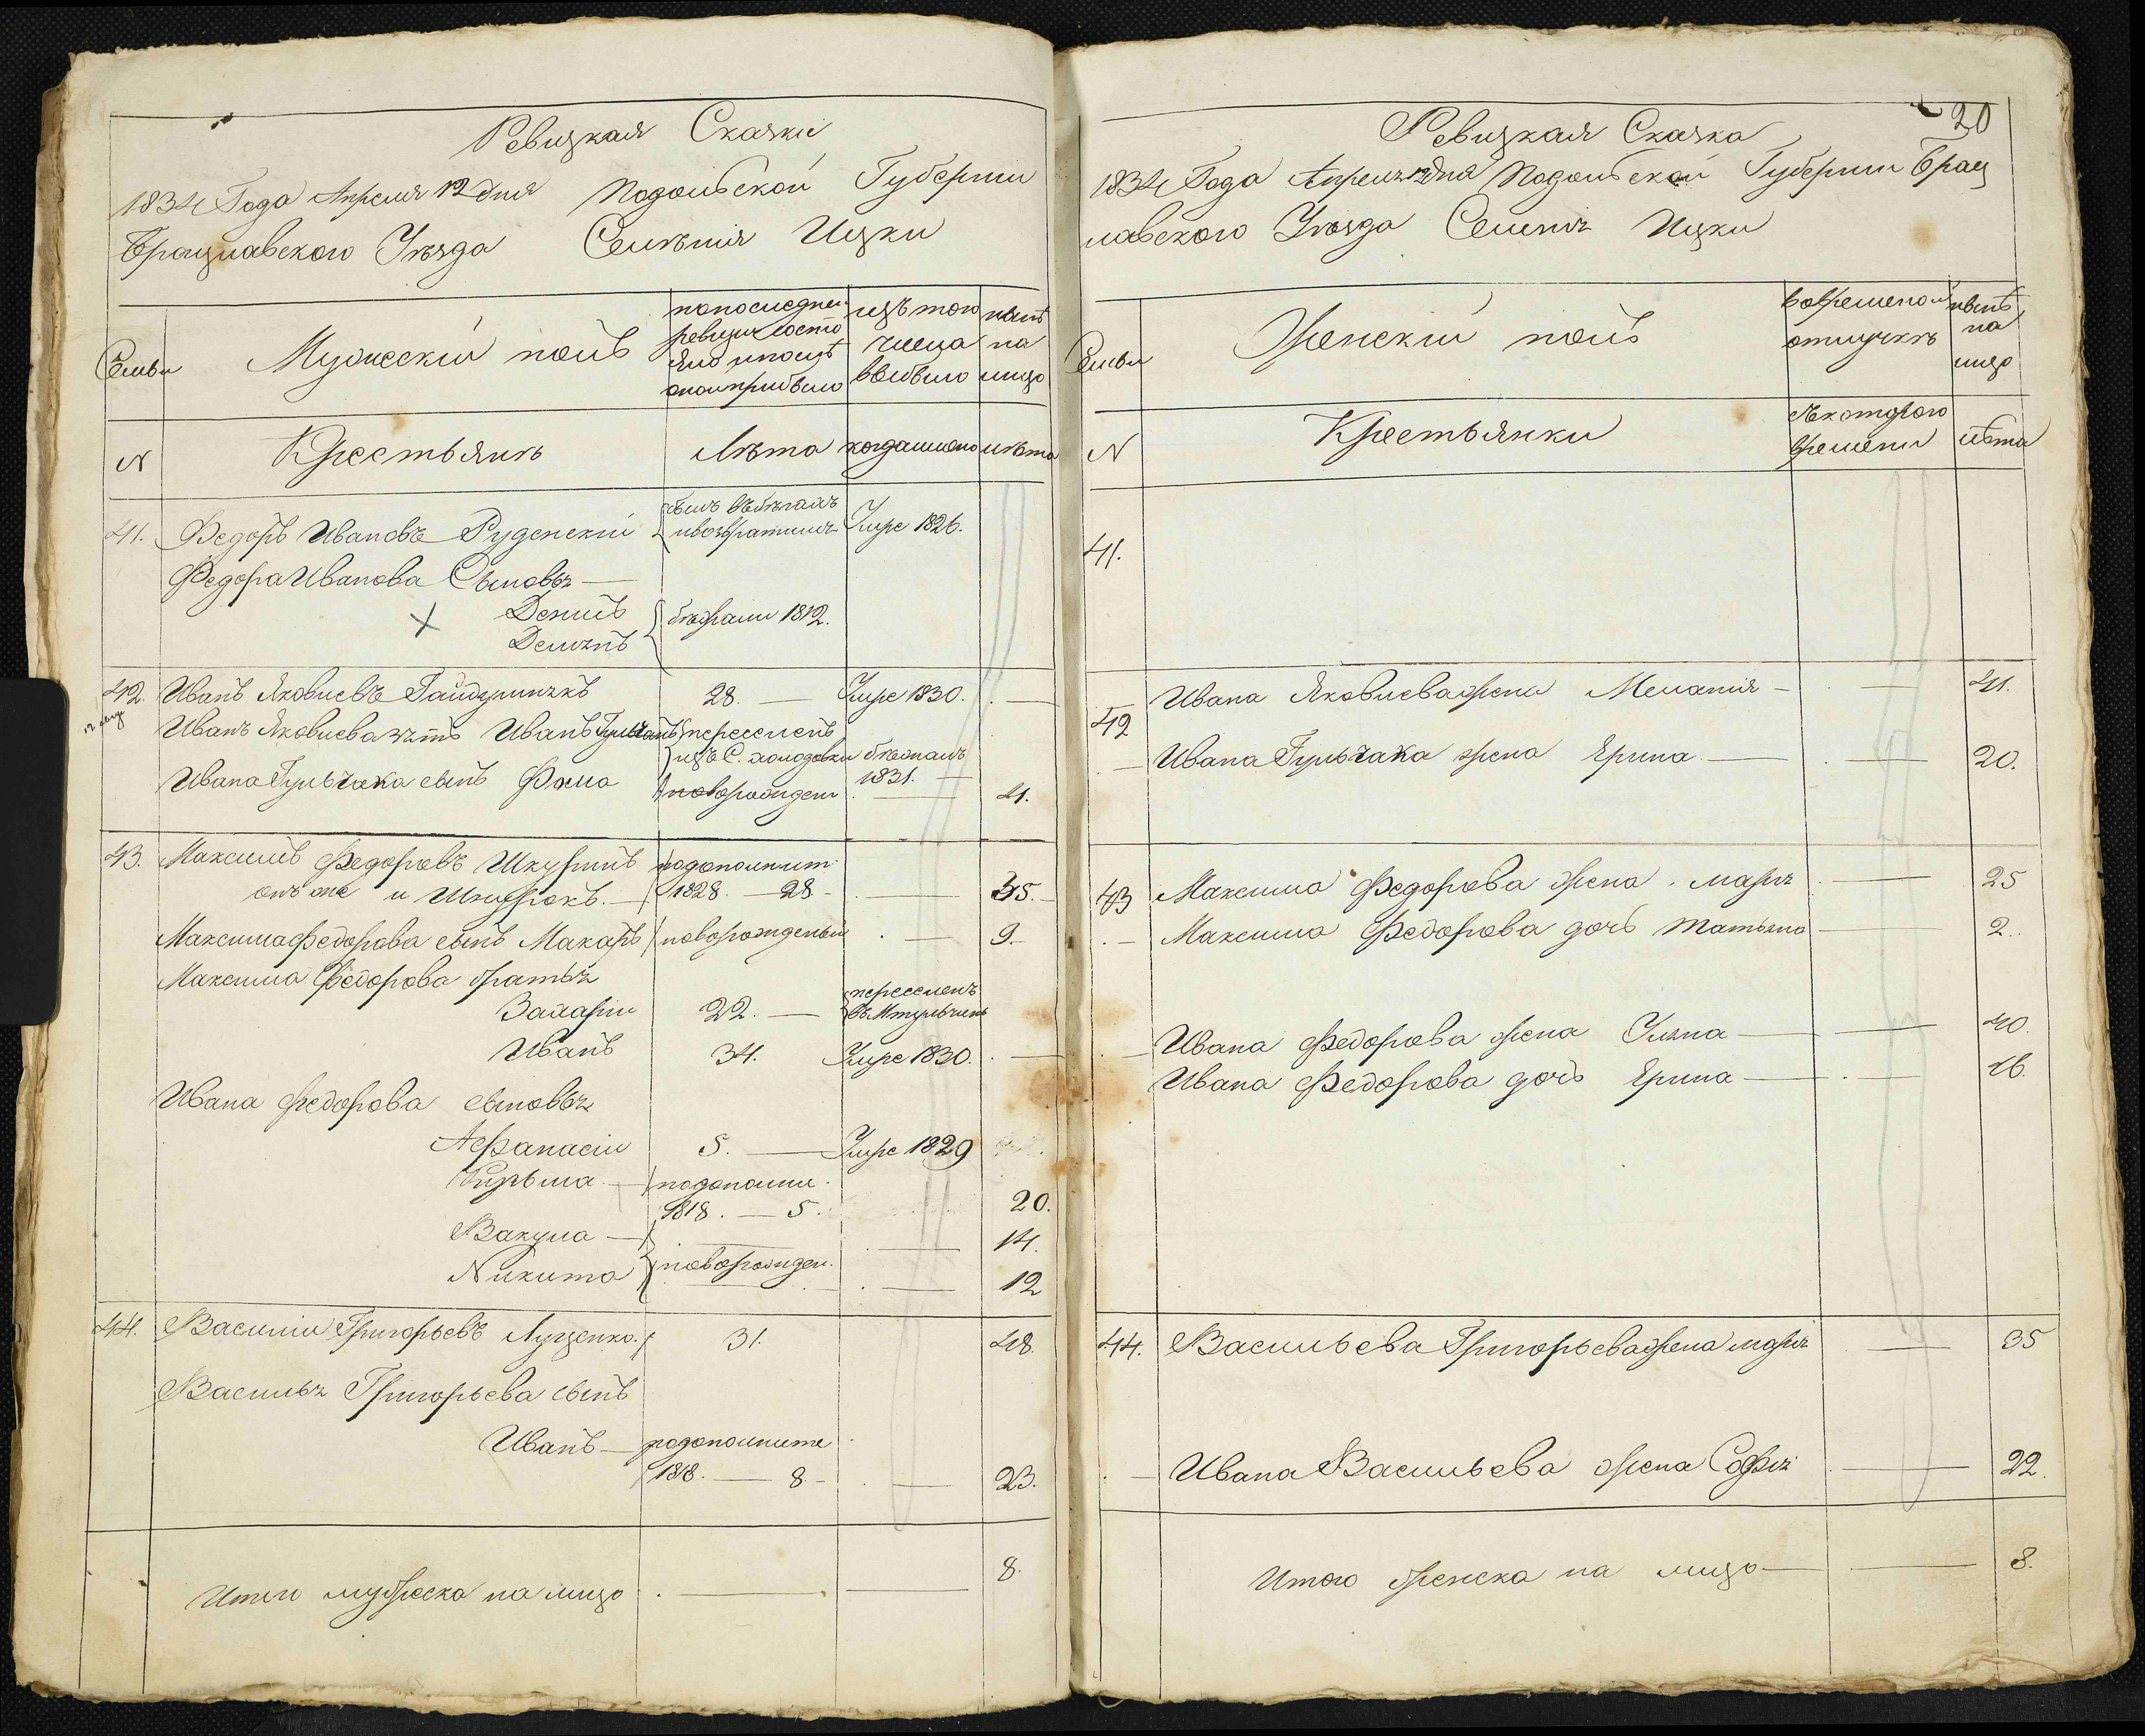 Ревизкая Сказка
1834 Года Апреля 12 дня Подольской Губернии
Брацлавского Уѣзда Селѣния Ицки
Семьи
Мужеский полъ
попоследней
ревизии состо
яло и после
оной прибыло
изъ того
числа
выбыло
ныне
на
лицо
N
Крестьянъ
Лѣта
когда именно
лѣта
41. Федоръ Ивановъ Руденский
былъ въ бѣгахъ
и возвратился
Умре 1826.
Федора Иванова Сыновья —
Денисъ
Демянъ
бѣжали 1812.
42. Иванъ Яковлевъ Гайдуринякъ 28. — Умре 1830. —
Иванъ Яковлева зять Иванъ Гульчакъ
переселенъ
изъ С. холодовки
бѣжалъ
1831. —
Ивана Гульчака сынъ Фома новорожден — 4.
43. Максимъ Федоровъ Шкурпитъ подополнит.
онъ же и Шкурокъ. — 1828. — 28 — 35. —
Максима Федорова сынъ Макаръ новорожденый — 9. —
Максима Федорова братья
Захарий 22. —
переселенъ
Иванъ 34. Умре 1830. —
Ивана Федорова сыновья
Афанасий 5. — Умре 1829
Кузьма — подополни.
1818. — 5. 20.
Вакула — 14.
Никита новорожден. — 12
44. Василий Григорьевъ Луценко. 31. 48.
Василья Григорьева сынъ
Иванъ — подополните
1818. — 8 — 23.
Итого мужеска на лицо — 8.
20
Ревизкая Сказка
1834 Года Апреля 12 дня Подольской Губернии Брац
лавского Уѣзда Селения Ицки
Семьи
Женский полъ
во временой
отлучкѣ
ныне
на
лицо
N
Крестьянки
съ котораго
времени
лѣта
41.
42 Ивана Яковлева жена Мелания — 41.
Ивана Гульчака жена Ярина — 20.
43 Максима Федорова жена марья — 25
Максима Федорова дочь татьяна — 2.
Ивана Федорова жена Уляна — 40.
Ивана Федорова дочь Ярина — 16.
44. Васильева Григорьева жена марья — 35
Ивана Васильева жена Софья — 22.
Итого женска на лицо — 8.